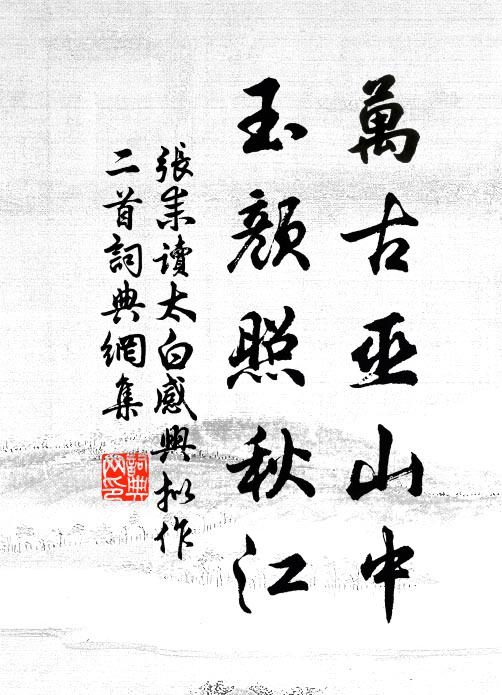 萬古巫山中
玉顏照秋江
張耒讀太白感興擬作
二首詞典網集
詞典
網印